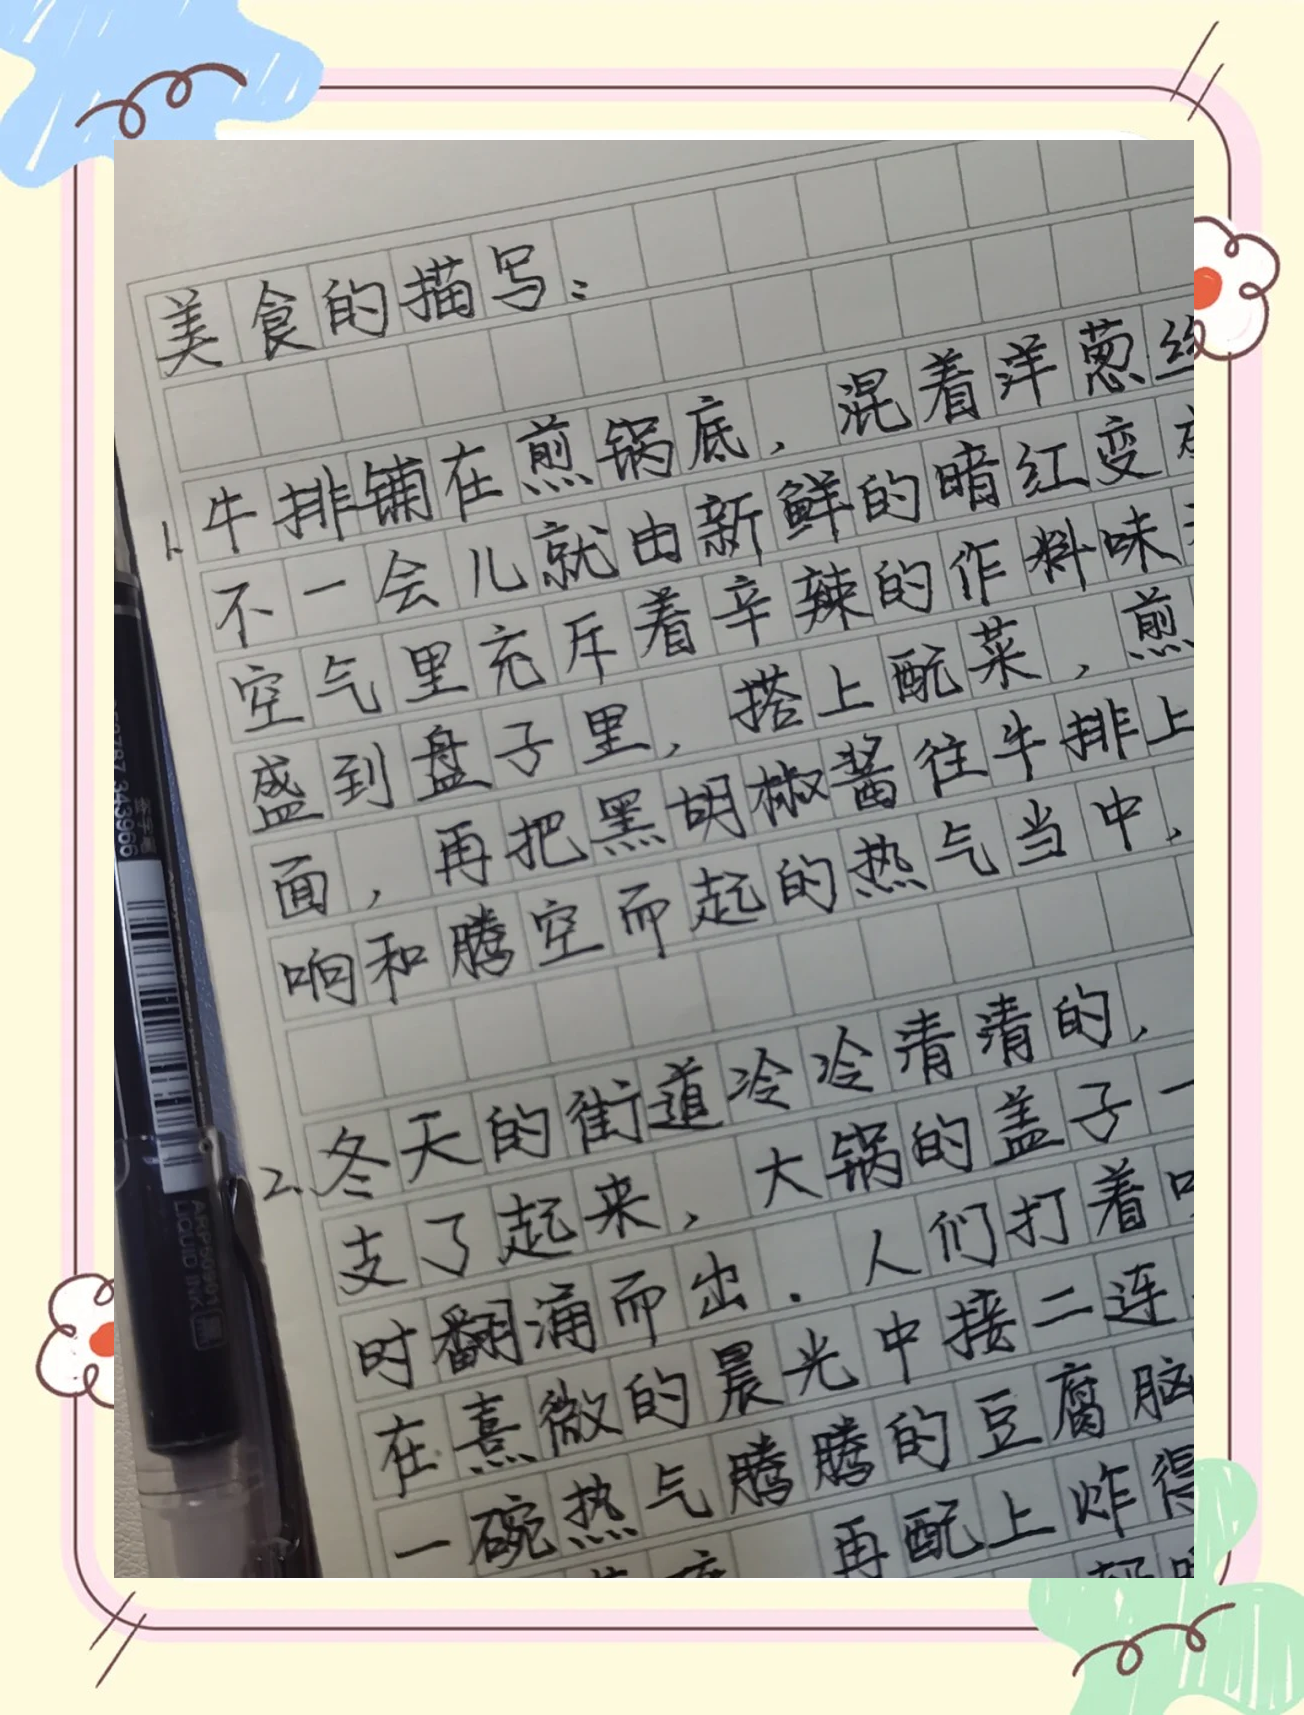 美食的描写：
1. 牛排铺在煎锅底，混着洋葱丝
不一会儿就由新鲜的暗红变
空气里充斥着辛辣的作料味
盛到盘子里，搭上配菜，煎
面，再把黑胡椒酱往牛排上
响和腾空而起的热气当中，
2. 冬天的街道冷冷清清的，
支了起来，大锅的盖子一
时翻涌而出．人们打着
在熹微的晨光中接二连
一碗热气腾腾的豆腐脑
再配上炸得
343966
ARP50901
LIQUID INK 黑